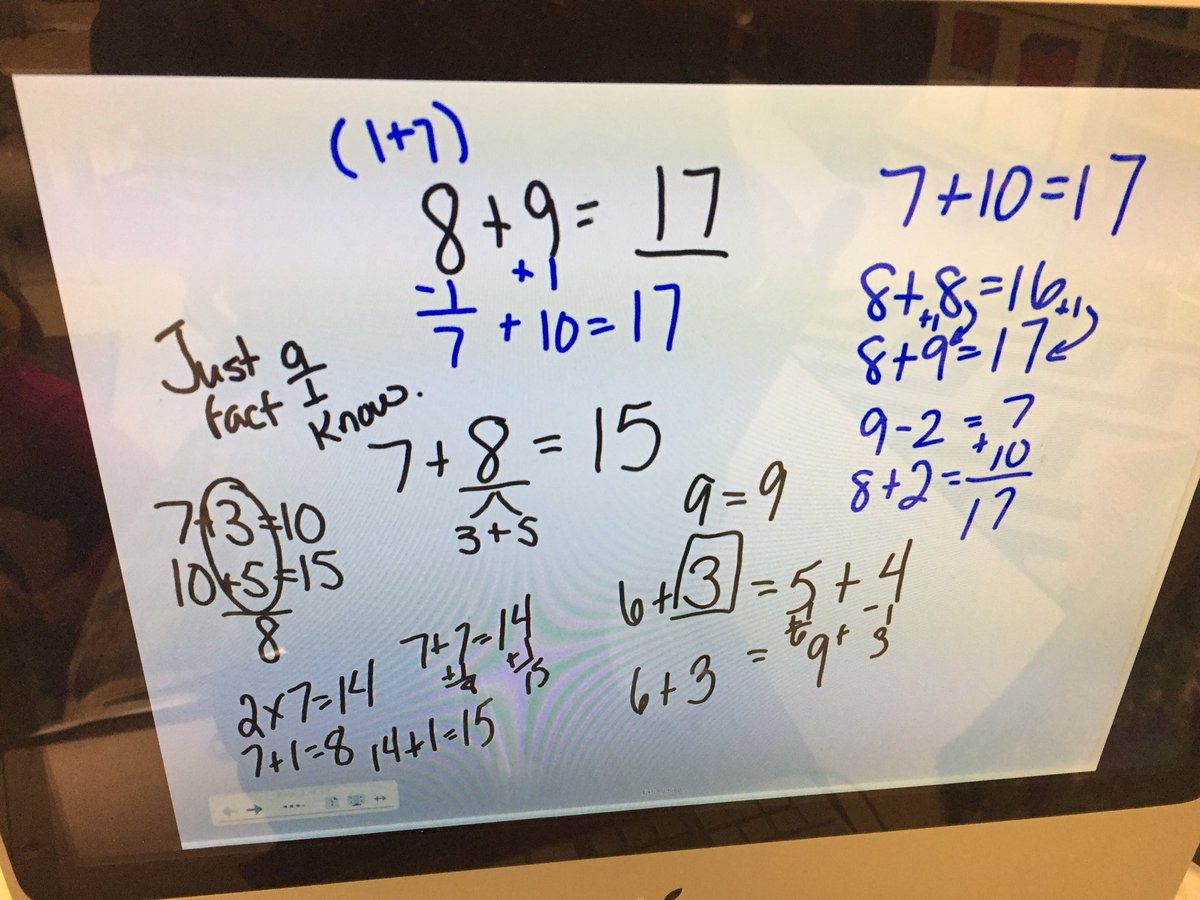 (1+7)
8+9= 17
-1 +1
7 + 10=17
7+10=17
8+8=16
+1 +1
8+9=17
9-2=7
+
8+2=10
17
Just a
fact I
Know.
7+8=15
3+5
7+3=10
10+5=15
8
9=9
6+3=5+4
-1
6+3 = 9+ 3
7+7=14
+1 +1
15
2x7=14
7+1=8 14+1=15